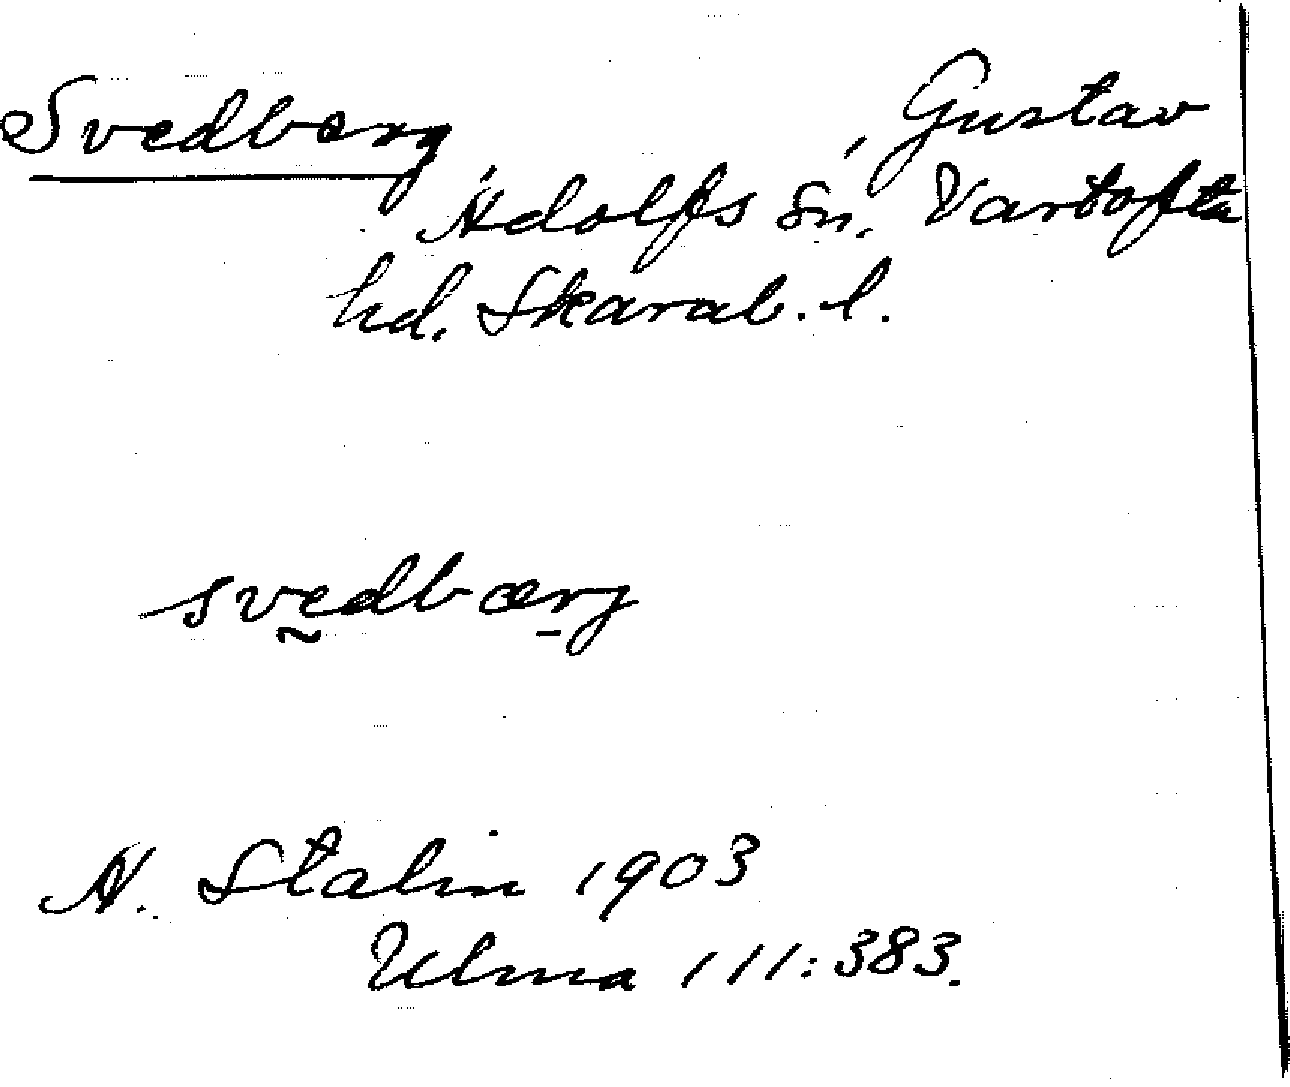 Svedberg, Gustav
Adolfs sn. Vartofta
hd. Skarab. l.
svedbærj
A. Stalin 1903
Ulma 111:383.